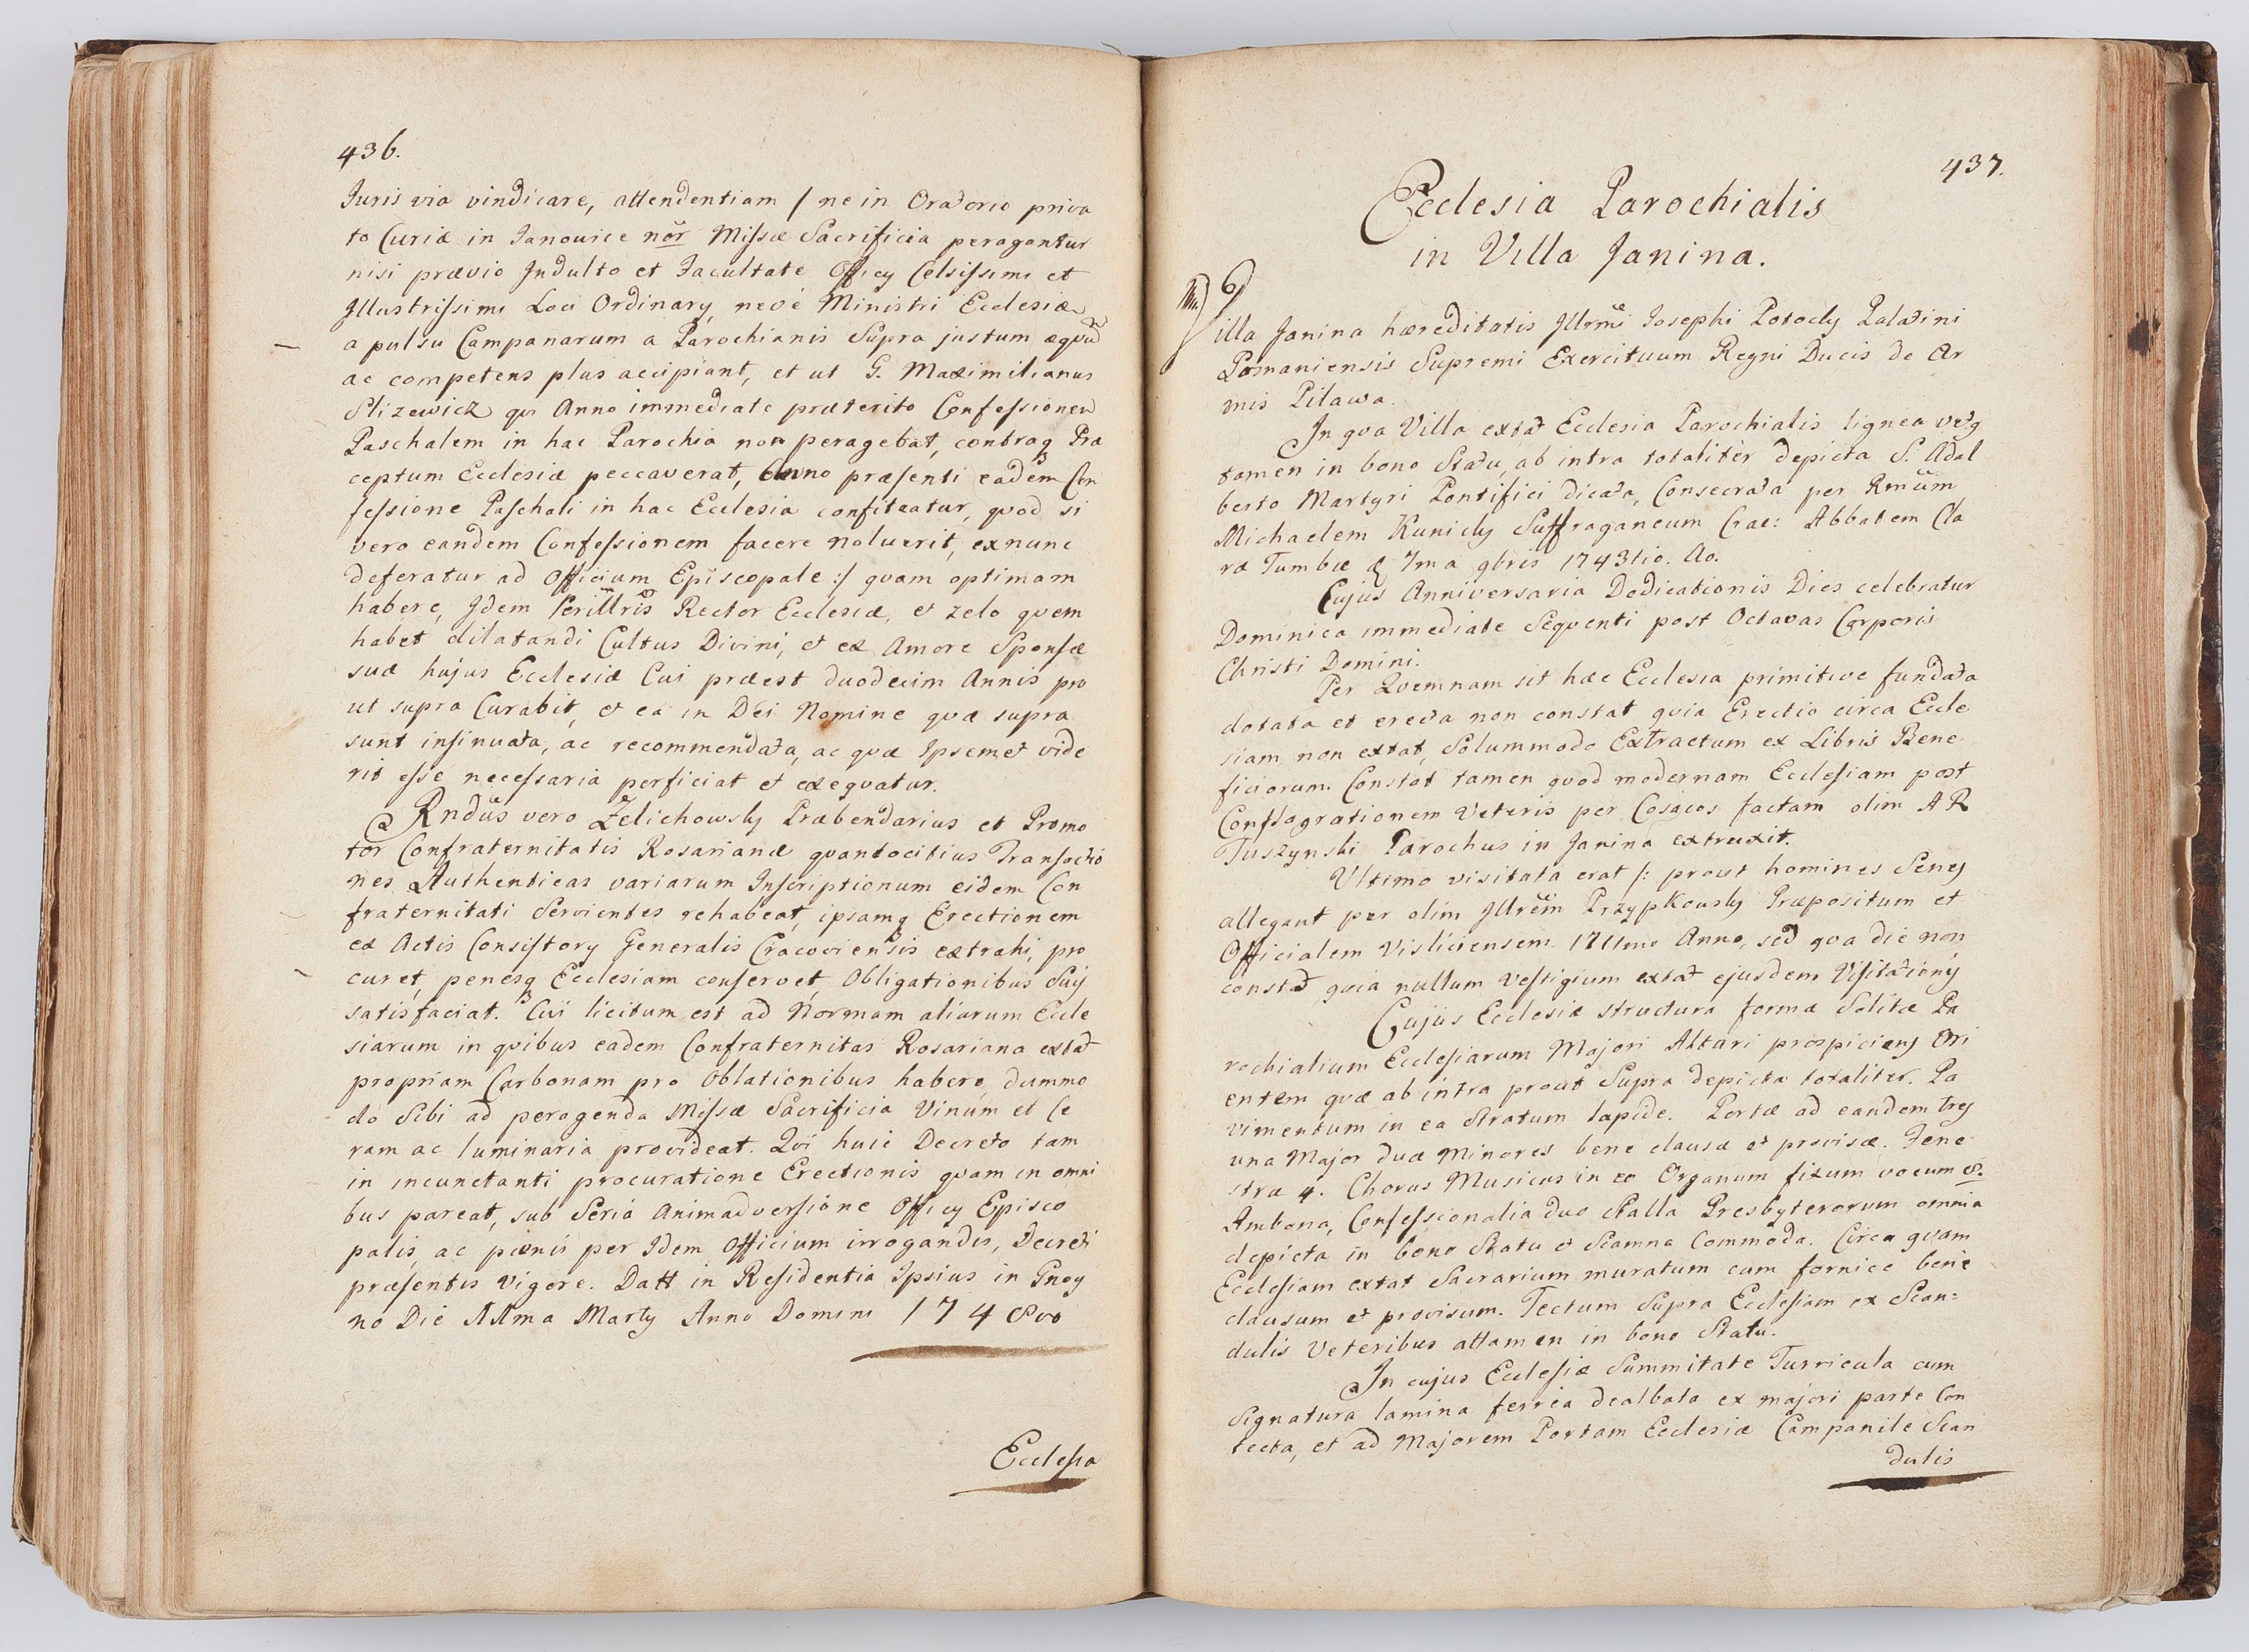 436.
Juris via vindicare, attendentiam / ne in Oratorio priva
to Curiæ in Janowice nor̃ Missæ Sacrificia peragantur
nisi prævio Indulto et Facultate Officy Celsissimi et
Illustrissimi Loci Ordinary, nevè Ministri Ecclesiæ
a pulsu Campanarum a Parochianis Supra justum æqvũ
ac competens plus accipiant, et ut G. Maximilianus
Slizewicz qui Anno immediate præterito Confessionem
Paschalem in hac Parochia non peragebat, contraq Præ
ceptum Ecclesiæ peccaverat, Anno præsenti eadem Con
fessione Paschali in hac Ecclesia confiteatur, qvod si
vero eandem Confessionem facere noluerit, exnunc
deferatur ad Officium Episcopale :/ qvam optimam
habere, Idem Perillris Rector Ecclesiæ, et zelo qvem
habet dilatandi Cultus Divini, et ex Amore Sponsæ
suæ hujus Ecclesiæ Cui præest duodecim Annis pro
ut supra Curabit, et ea in Dei Nomine qvæ supra
sunt insinuata, ac recommendata, ac qvæ Ipsemet vide
rit esse necessaria perficiat et exeqvatur.
Rndũs vero Zelichowsky Præbendarius et Promo
tor Confraternitatis Rosarianæ qvantocitius Transactio
nes Authenticas variarum Inscriptionum eidem Con
fraternitati Servientes rehabeat, ipsamq Erectionem
ex Actis Consistory Generalis Cracoviensis extrahi, pro
curet, penesq Ecclesiam conservet, Obligationibus Suis
satisfaciat. Cui licitum est ad Normam aliarum Eccle
siarum in qvibus eadem Confraternitas Rosariana extat
propriam Carbonam pro Oblationibus habere, dummo
do Sibi ad peragenda Missæ Sacrificia Vinum et Ce
ram ac luminaria provideat. Qvi huic Decreto tam
in incunctanti procuratione Erectionis qvam in omni
bus pareat, sub Seria Animadversione Officy Episco
palis, ac pænis per Idem Officium irrogandis, Decreti
præsentis vigore. Datt in Residentia Ipsius in Gnoy
no Die Marty Anno Domini 1748vo
Ecclesia
437.
Ecclesia Parochialis
in Villa Janina.
Villa Janina hæreditatis Illrmi Josephi Potocky Palatini
Posnaniensis Supremi Exercituum Regni Ducis de Ar
mis Pilawa.
In qva Villa extat Ecclesia Parochialis lignea vetq
tamen in bono Statu, ab intra totalitèr depicta S. Adal
berto Martyri Pontifici dicata, Consecrata per Rmũm
Michaelem Kunicky Suffraganeum Crac: Abbatem Cla
ræ Tumbæ 7ma 9bris 1743tio. Ao.
Cujus Anniversaria Dedicationis Dies celebratur
Dominica immediate Seqventi post Octavas Corporis
Christi Domini.
Per Qvemnam sit hæc Ecclesia primitive fundata
dotata et erecta non constat qvia Erectio circa Eccle
siam non extat, Solummodo Extractum ex Libris Bene
ficiorum. Constat tamen qvod modernam Ecclesiam post
Conflagrationem Veteris per Cosacos factam olim AR
Tuszynski Parochus in Janina extruxit.
Ultimo visitata erat /: prout homines Senes
allegant per olim Illrem Przypkowsky Præpositum et
Officialem Visliciensem 1711mo Anno, sed qva die non
constat qvia nullum vestigium extat ejusdem Visitationis
Cujus Ecclesiæ structura forma Solitæ Pa
rochialium Ecclesiarum Majori Altari prospiciens Ori
entem qvæ ab intra prout Supra depicta totaliter. Pa
vimentum in ea Stratum lapide. Portæ ad eandem tres
una Major duæ Minores bene clausæ et provisæ. Fene
stræ 4. Chorus Musicus in eo Organum fixum vocum 8.
Ambona, Confessionalia duo Stalla Presbyterorum omnia
depicta in bono Statu et Scamna Commoda. Circa qvam
Ecclesiam extat Sacrarium muratum cum fornice bene
clausum et provisum. Tectum Supra Ecclesiam ex Scan=
dulis Veteribus attamen in bono Statu.
In cujus Ecclesiæ Summitate Turricula cum
Signatura lamina ferrea dealbata ex majori parte Con
tecta, et ad Majorem Portam Ecclesiæ Campanile Scan
dulis